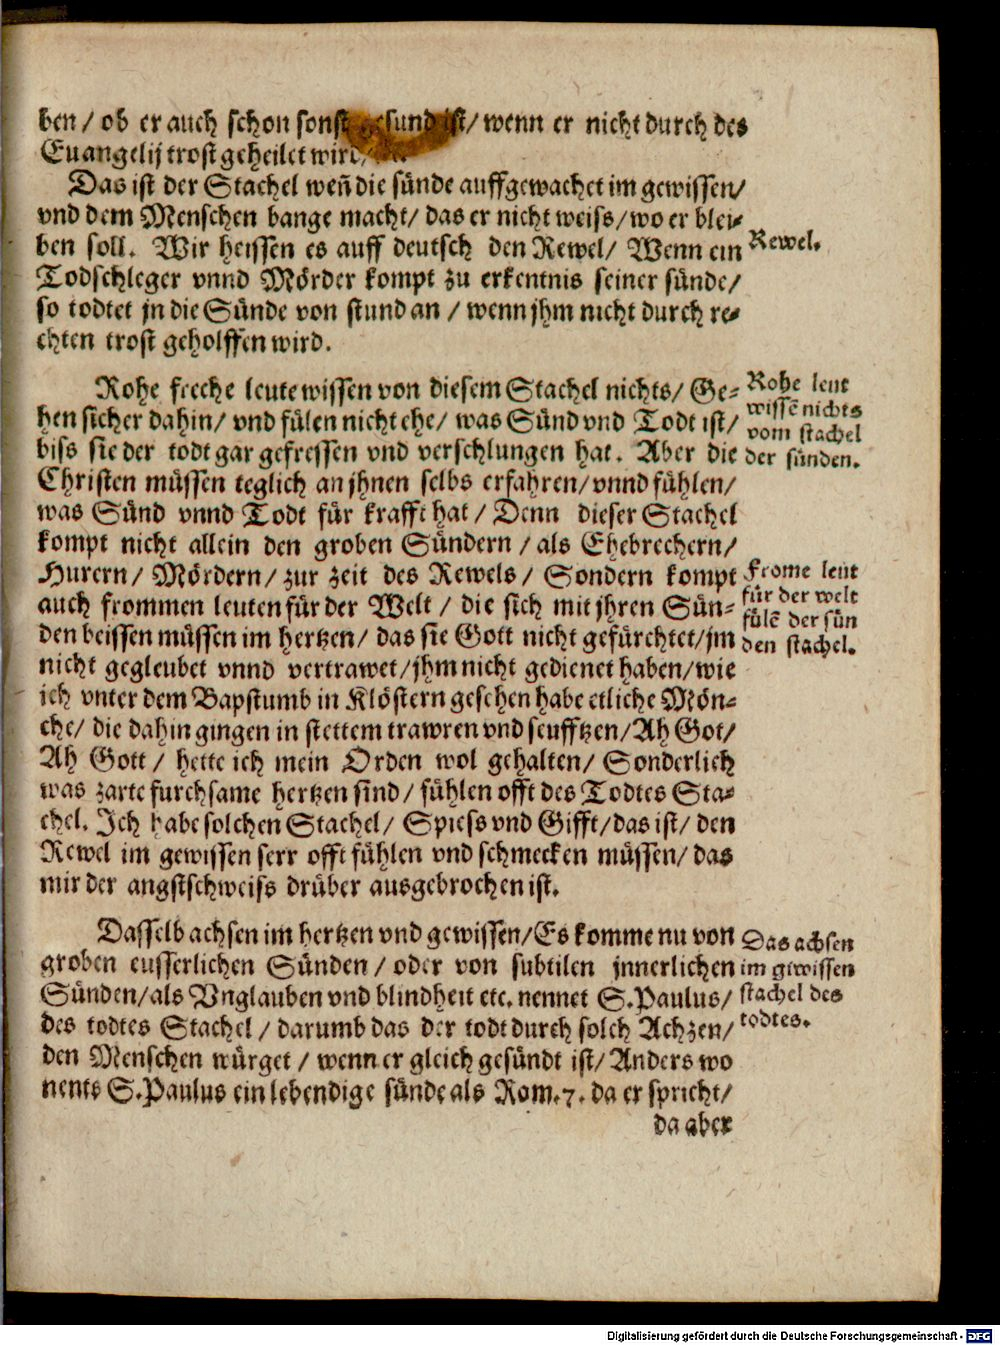 ben / ob er auch schon sonst gesund ist / wenn er nicht durch des
Euangelij trost geheilet wird /
Das ist der Stachel weñ die sünde auffgewachet im gewissen /
vnd dem Menschen bange macht / das er nicht weiss / wo er blei-
ben soll. Wir heissen es auff deutsch den Rewel / Wenn ein
Rewel.
Todschleger vnnd Mörder kompt zu erkentnis seiner sünde /
so todtet jn die Sünde von stund an / wenn jhm nicht durch re-
chten trost geholffen wird.
Rohe freche leute wissen von diesem Stachel nichts / Ge-
hen sicher dahin / vnd fülen nicht ehe / was Sünd vnd Todt ist /
biss sie der todt gar gefressen vnd verschlungen hat. Aber die
Rohe leut
wissē nichts
vom stachel
der sünden.
Christen müssen teglich an jhnen selbs erfahren / vnnd fühlen /
was Sünd vnnd Todt für krafft hat / Denn dieser Stachel
kompt nicht allein den groben Sündern / als Ehebrechern /
Hurern / Mördern / zur zeit des Rewels / Sondern kompt
auch frommen leuten für der Welt / die sich mit jhren Sün-
den beissen müssen im hertzen / das sie Gott nicht gefürchtet / jm
Frome leut
für der welt
fülē der sün
den stachel.
nicht gegleubet vnnd vertrawet / jhm nicht gedienet haben / wie
ich vnter dem Bapstumb in Klöstern gesehen habe etliche Mön-
che / die dahin gingen in stettem trawren vnd seufftzen / Ah Got /
Ah Gott / hette ich mein Orden wol gehalten / Sonderlich
was zarte furchsame hertzen sind / fühlen offt des Todtes Sta-
chel. Ich habe solchen Stachel / Spiess vnd Gifft / das ist / den
Rewel im gewissen serr offt fühlen vnd schmecken müssen / das
mir der angstschweiss drüber ausgebrochen ist.
Dasselb achsen im hertzen vnd gewissen / Es komme nu von
groben eusserlichen Sünden / oder von subtilen jnnerlichen
Sünden / als Vnglauben vnd blindheit etc. nennet S. Paulus /
des todtes Stachel / darumb das der todt durch solch Achzen /
Das achsen
im gewissen
stachel des
todtes.
den Menschen würget / wenn er gleich gesündt ist / Anders wo
nents S. Paulus ein lebendige sünde als Rom. 7. da er spricht /
da aber
Digitalisierung gefördert durch die Deutsche Forschungsgemeinschaft - DFG